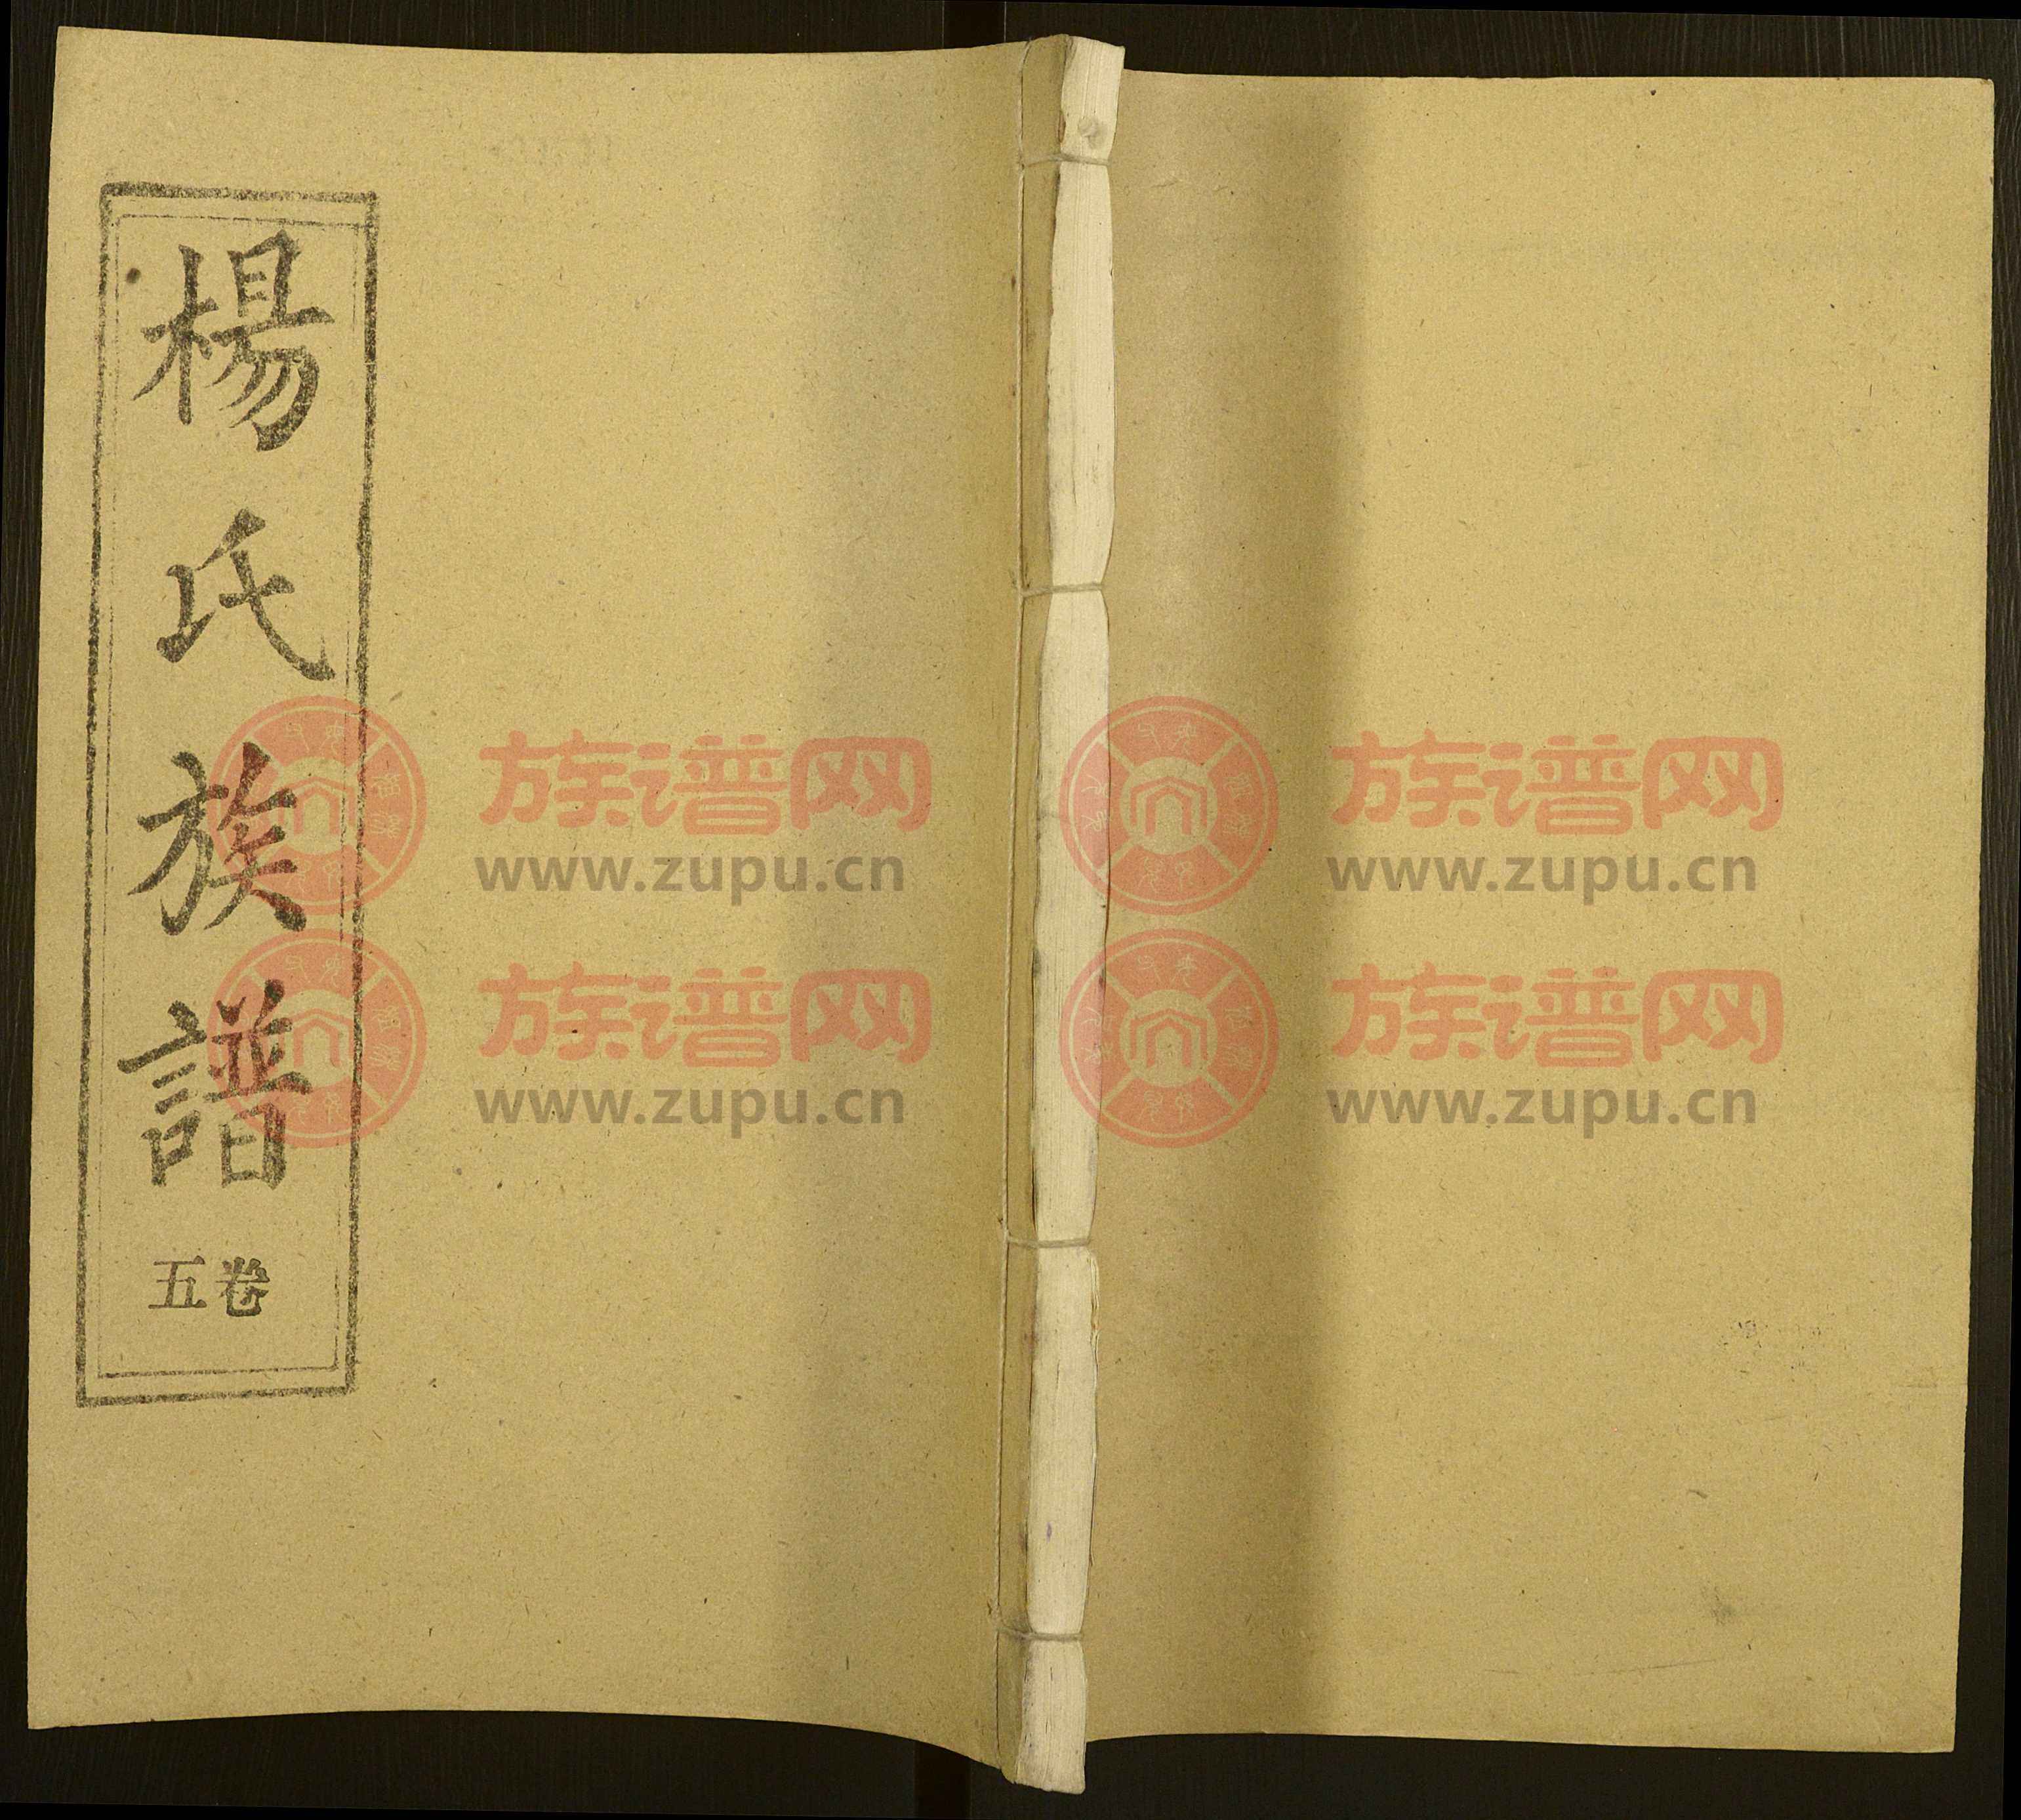 楊氏族譜
卷五
族谱网
www.zupu.cn
族谱网
www.zupu.cn
族谱网
www.zupu.cn
族谱网
www.zupu.cn